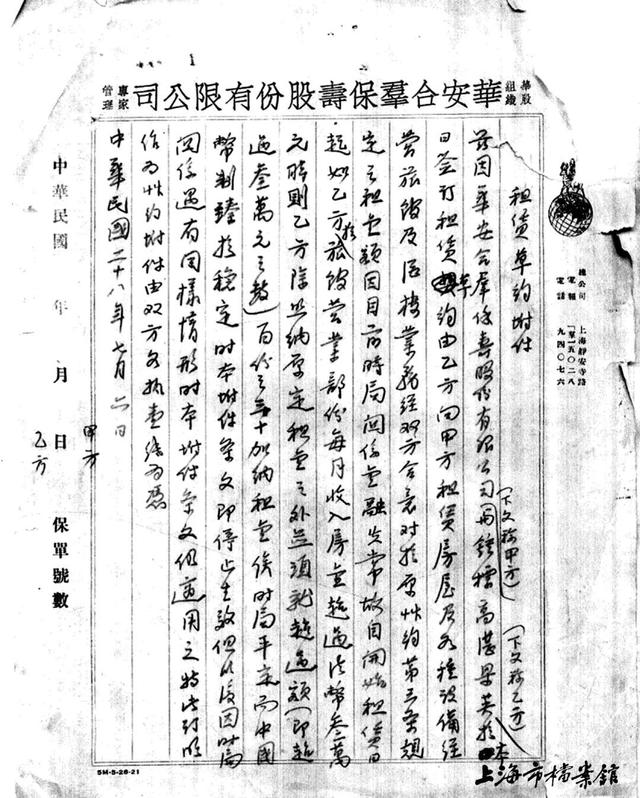 華股組織 華安合羣保壽股份有限公司 專家管理
總公司 上海靜安寺路
電報
電話 九四〇七六
租賃草約附件
茲因華安合羣保壽股份有限公司(下文稱甲方)(下文稱乙方)於本
日簽訂租賃草約由乙方向甲方租賃房屋及各種設備經
營旅館及酒樓業務經双方合意对於原草約第三条規
定之租金額因目前時局関係金融失常故自開始租賃日
起如乙方於旅館營業部份每月收入房金超過法幣叁萬
元時則乙方除照納原定租金之外並須就超過額(即超
過叁萬元之数)百份之三十加納租金俟時局平定而中國
幣制臻於穩定时本附件条文即停止生效但以後因时局
関係遇有同樣情形时本附件条文仍適用之特此訂明
作為草約附件由双方各執壹紙為憑
中華民國二十八年七月六日
甲方
乙方
中華民國 年 月 日 保單號數
5M-5-28-21
上海市檔案館